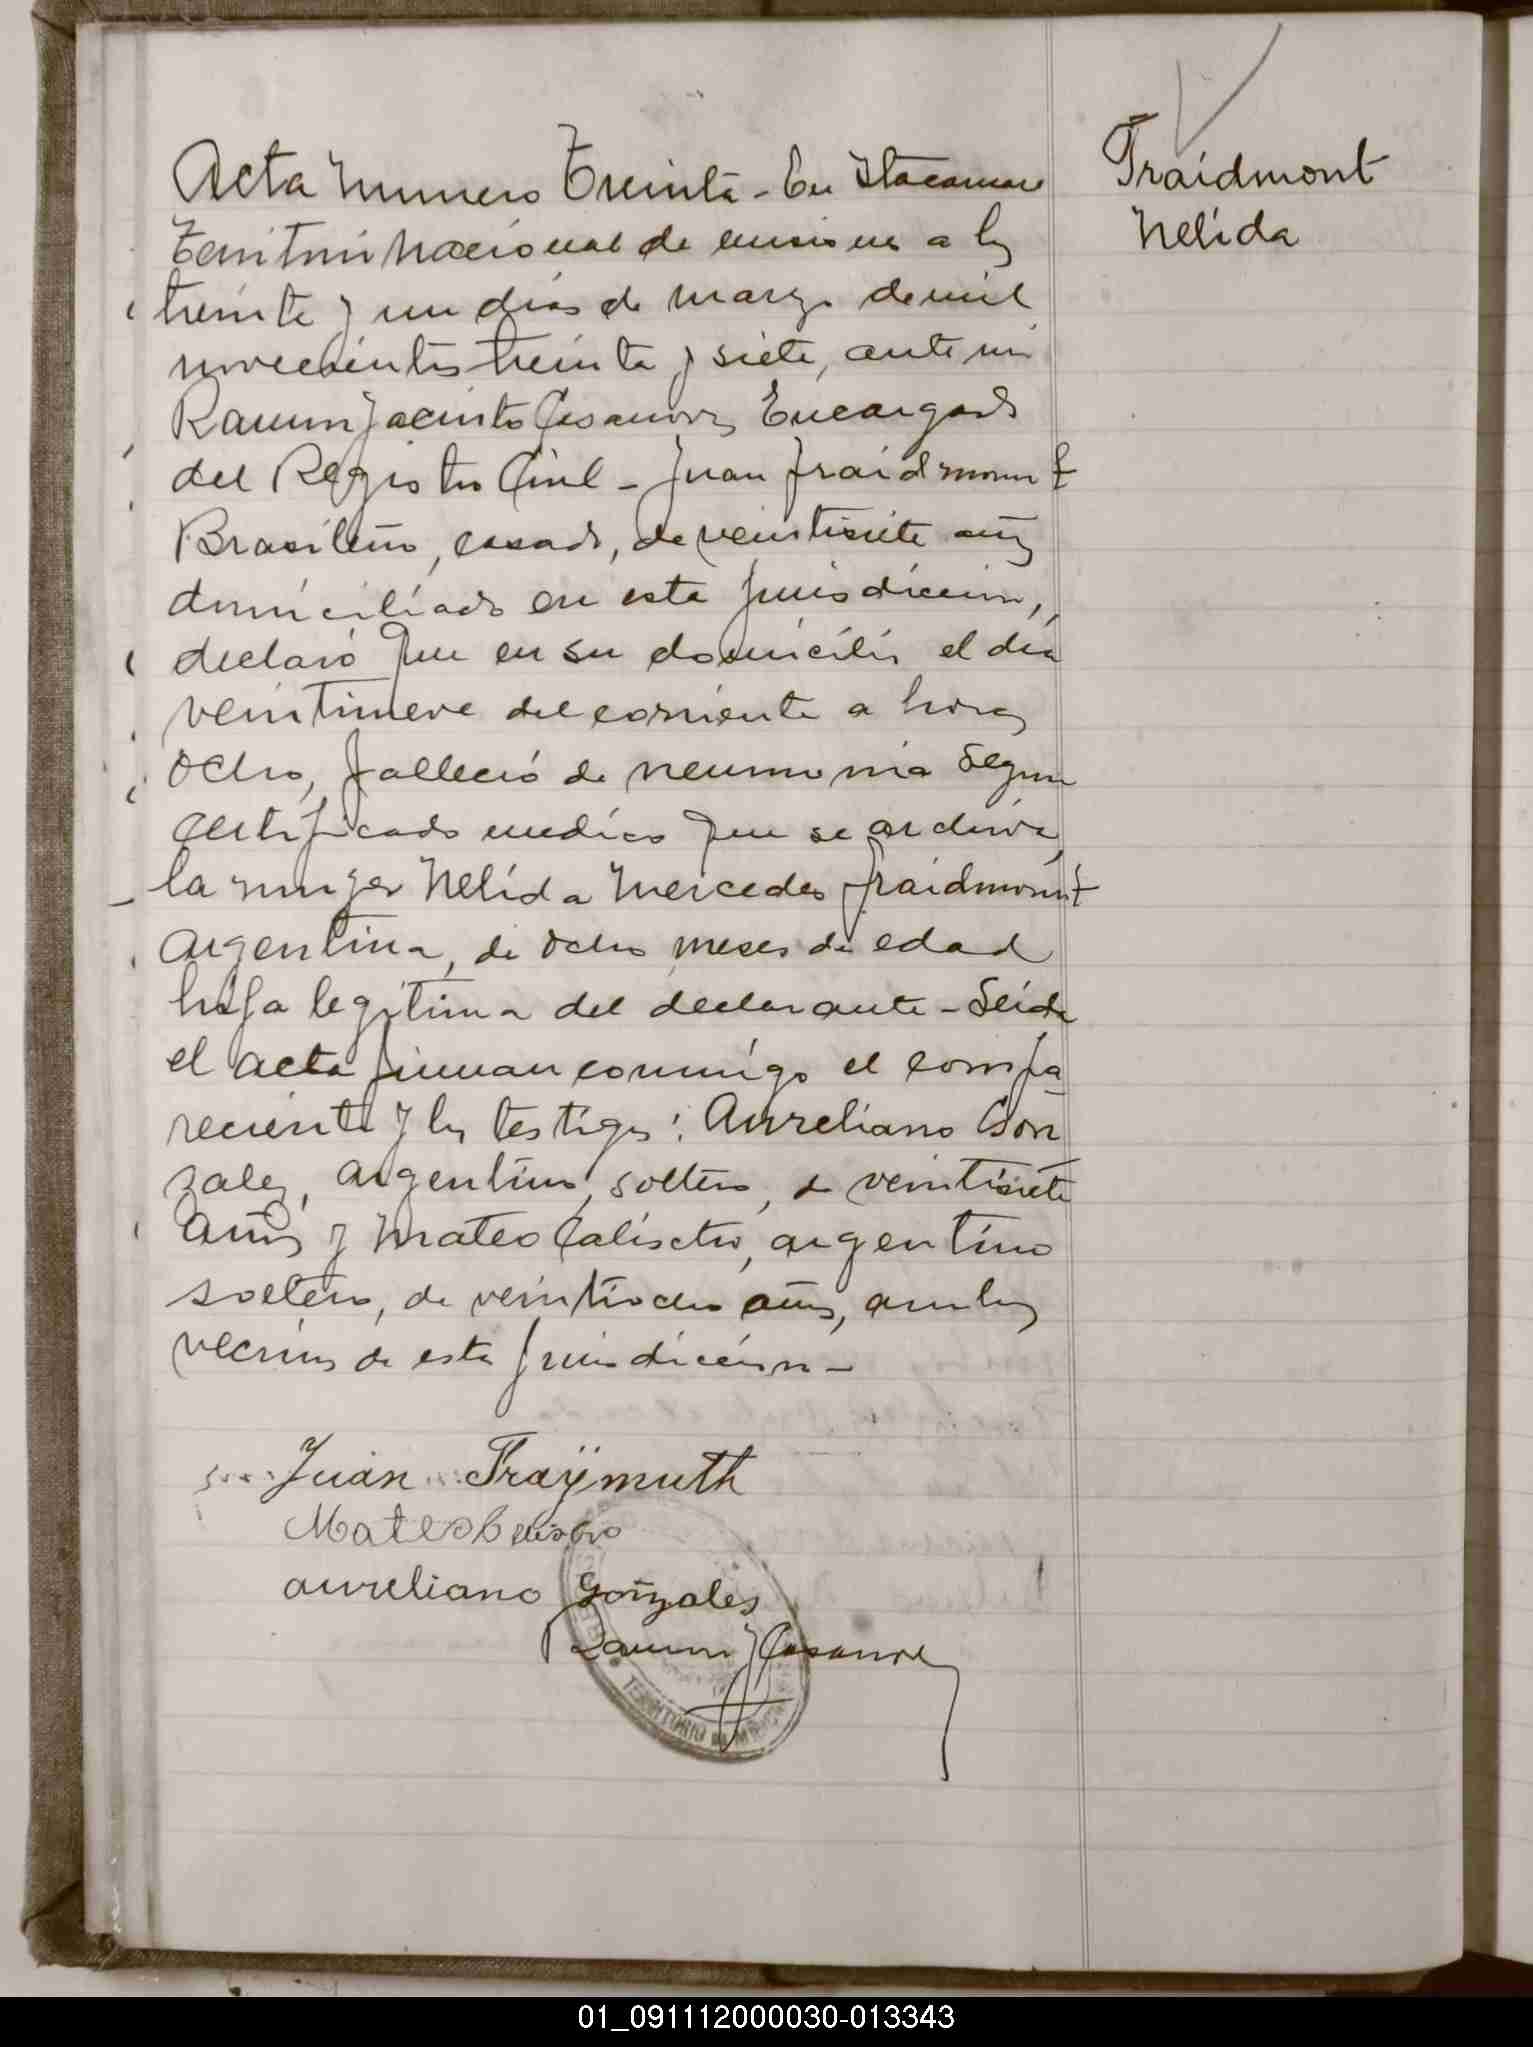 Fraidmont
Nelida
Acta Numero Treinta - En Itacaruare
Territorio Nacional de misiones a los
treinta y un dias de marzo de mil
novecientos treinta y siete, ante mi
Ramon Jacinto Casanova Encargado
del Registro Civil - Juan Fraidmount
Brasileño, casado, de veintisiete años
domiciliado en esta jurisdiccion,
declaró que en su domicilio el dia
veintinueve del corriente a horas
ocho, falleció de neumonia segun
certificado medico que se archiva,
la mujer Nelida Mercedes Fraidmount
argentina, de ocho meses de edad
hija legitima del declarante - Leida
el acta firman conmigo el compa
reciente y los testigos: Aureliano Gon
zalez, argentino, soltero, de veintisiete
años y Mateo Calistro, argentino
soltero, de veintiocho años, ambos
vecinos de esta jurisdiccion -
Juan Fraÿmuth
Mateo
aureliano Gonzales
Ramon J Casanova
TERRITORIO DE MISIONES
01_091112000030-013343